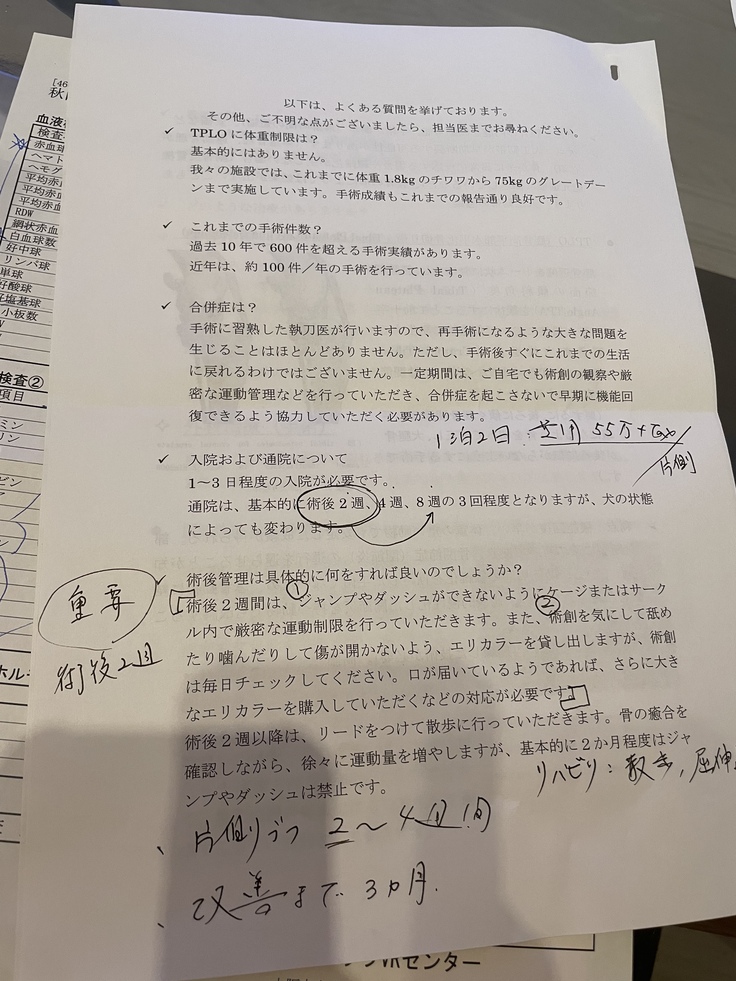 以下は、よくある質問を挙げております。
その他、ご不明な点がございましたら、担当医までお尋ねください。
✓ TPLO に体重制限は？
基本的にはありません。
我々の施設では、これまでに体重 1.8kg のチワワから 75kg のグレートデー
ンまで実施しています。手術成績もこれまでの報告通り良好です。
✓ これまでの手術件数？
過去 10 年で 600 件を超える手術実績があります。
近年は、約 100 件／年の手術を行っています。
✓ 合併症は？
手術に習熟した執刀医が行いますので、再手術になるような大きな問題を
生じることはほとんどありません。ただし、手術後すぐにこれまでの生活
に戻れるわけではございません。一定期間は、ご自宅でも術創の観察や厳
密な運動管理などを行っていただき、合併症を起こさないで早期に機能回
復できるよう協力していただく必要があります。
1泊2日: 55万+Tax
／片側
✓ 入院および通院について
1～3 日程度の入院が必要です。
通院は、基本的に術後 2 週、4 週、8 週の 3 回程度となりますが、犬の状態
によっても変わります。
✓ 術後管理は具体的に何をすれば良いのでしょうか？
重要
術後2週
①
②
術後 2 週間は、ジャンプやダッシュができないようにケージまたはサーク
ル内で厳密な運動制限を行っていただきます。また、術創を気にして舐め
たり噛んだりして傷が開かないよう、エリカラーを貸し出しますが、術創
は毎日チェックしてください。口が届いているようであれば、さらに大き
なエリカラーを購入していただくなどの対応が必要です。
術後 2 週以降は、リードをつけて散歩に行っていただきます。骨の癒合を
確認しながら、徐々に運動量を増やしますが、基本的に 2 か月程度はジャ
ンプやダッシュは禁止です。
リハビリ: 散歩, 屈伸
、片側ずつ 2～4週間
、改善まで 3ヵ月.
[46
秋
血液
検査
赤血球
ヘマト
ヘモグ
平均赤
平均赤
平均赤
RDW
網状赤血
白血球数
好中球
リンパ球
単球
好酸球
好塩基球
小板数
検査②
項目
ミン
リン
ビン
ホル
センター